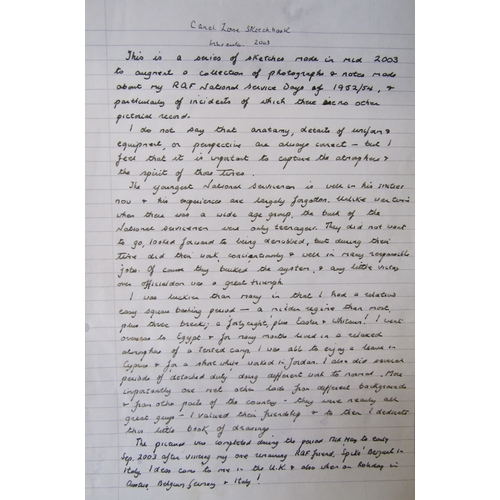 Canal Zone Sketchbook
2003
This is a series of sketches made in mid 2003
to augment a collection of photographs & notes made
about my RAF National Service Days of 1952/54, &
particularly of incidents of which there is no other
pictorial record.
I do not say that anatomy, details of uniform &
equipment, or perspective are always correct - but I
feel that it is important to capture the atmosphere &
the spirit of those times.
The youngest National Serviceman is well in his sixties
now & his experiences are largely forgotten. Unlike wartime
when there was a wide age group, the bulk of the
National servicemen were only teenagers. They did not want
to go, looked forward to being demobbed, but during their
time did their work conscientiously & well in many responsible
jobs. Of course they bucked the system, & any little victory
over officialdom was a great triumph
I was luckier than many in that I had a relatively
easy square bashing period - a milder regime than most,
plus three breaks; a forty eight, plus Easter & Whitsun! I went
overseas to Egypt & for many months lived in a relaxed
atmosphere of a tented camp. I was able to enjoy a leave in
Cyprus & for a short while worked in Jordan. I also did several
periods of 'detached duty' doing different work to normal. More
importantly one met other lads from different backgrounds
& from other parts of the country - they were nearly all
great guys! I valued their friendship & to them I dedicate
this little book of drawings
The pictures were completed during the period Mid May to early
Sep. 2003 after visiting my one remaining RAF friend, 'Spike' in
Italy. Ideas came to me in the U.K & also when on holiday in
Belgium, Germany & Italy!